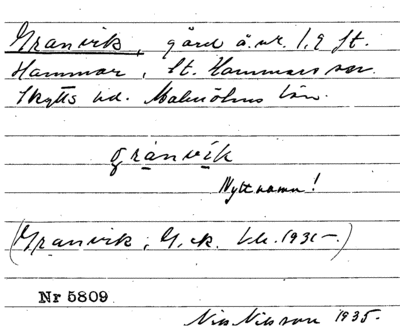 Granvik, gård å nr. 1,9 St.
Hammar, St. Hammars sn.
Skytts hd. Malmöhus län.
grànvík
Nytt namn!
(Granvik, G. ek. bl. 1935.)
Nr 5809
Nils Nilsson 1935.